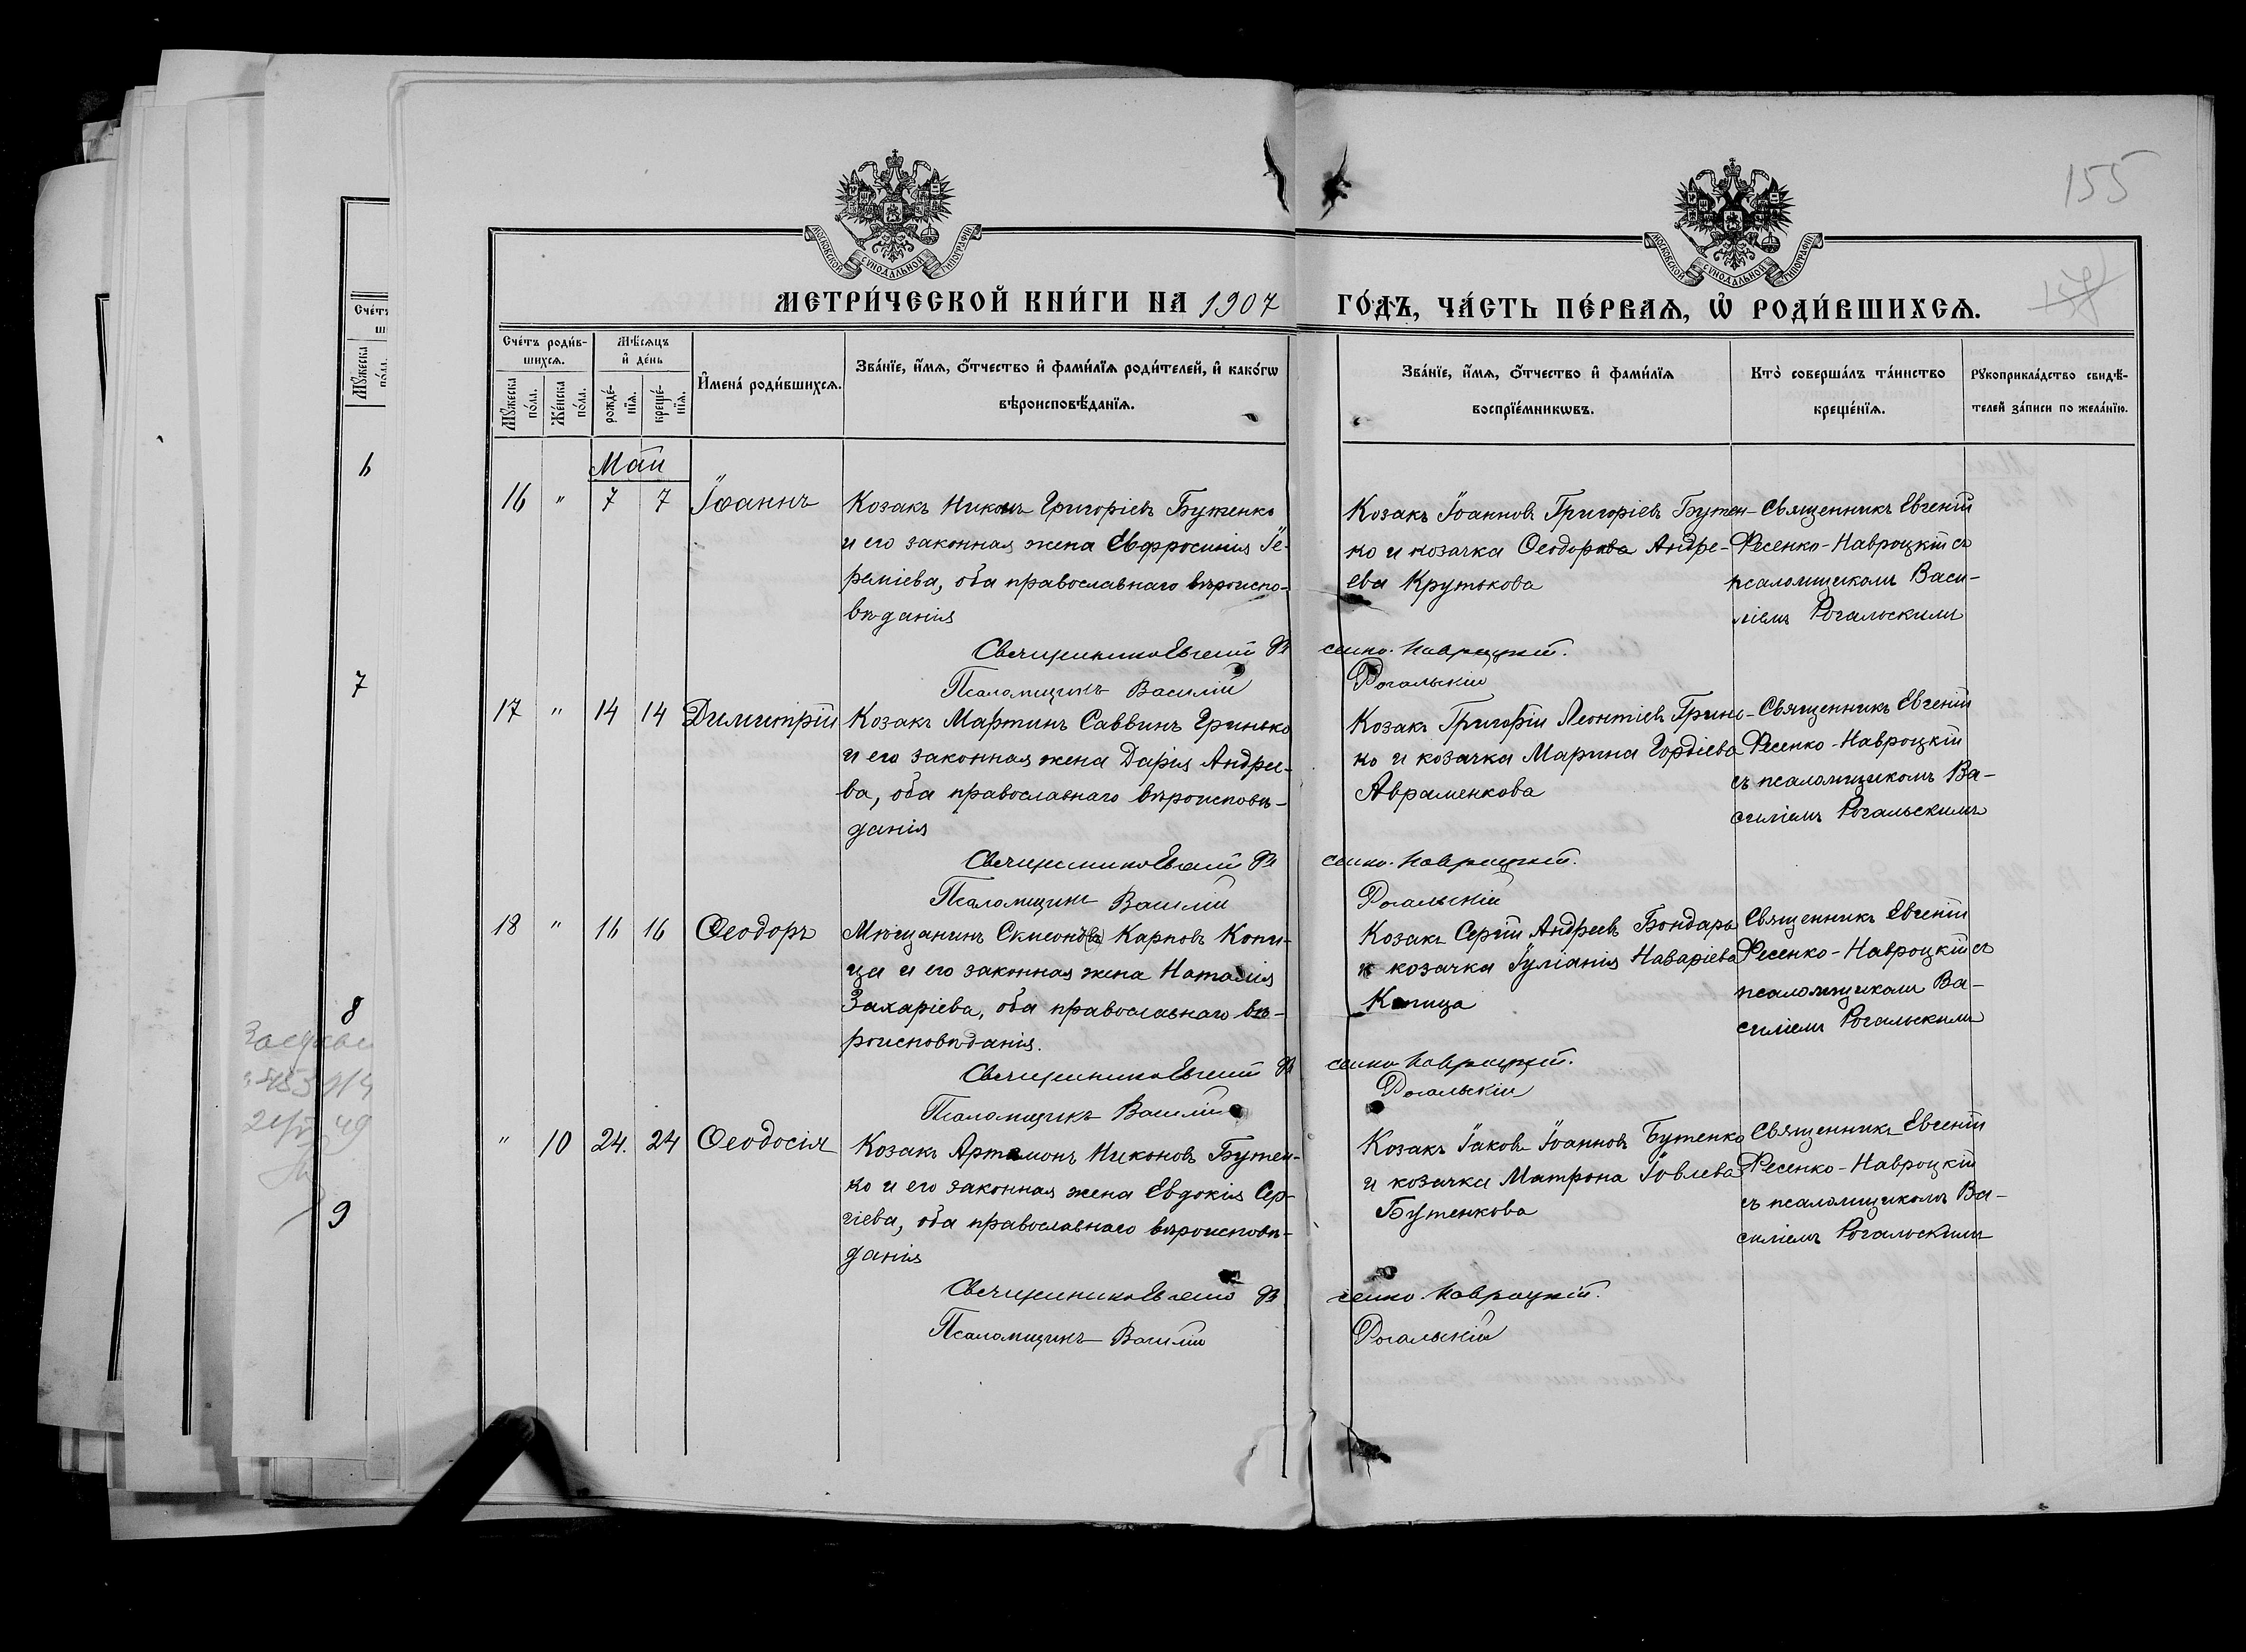 155
МОСКОВСКОЙ СѴНОДАЛЬНОЙ ТИПОГРАФІИ
МОСКОВСКОЙ СѴНОДАЛЬНОЙ ТИПОГРАФІИ
МЕТРИ́ЧЕСКОЙ КНИ́ГИ НА 1907
ГО́ДЪ, ЧА́СТЬ ПЕ́РВАѦ, Ѽ РОДИ́ВШИХСѦ.
Сче́тъ роди́в-
шихсѧ.
Мꙋ́жеска по́ла.
Же́нска по́ла.
Мѣ́сѧцъ
и҆ де́нь
рожде́-
нїѧ.
креще́-
нїѧ.
И҆мена̀ роди́вшихсѧ.
Зва́нїе, и҆́мѧ, ѻ҆́тчество и҆ фами́лїѧ роди́телей, и҆ како́гѡ
вѣроисповѣ́данїѧ.
Зва́нїе, и҆́мѧ, ѻ҆́тчество и҆ фами́лїѧ
воспрїе́мникѡвъ.
Кто̀ соверша́лъ та́инство
креще́нїѧ.
Рꙋкоприкла́дство свидѣ́-
телей за́писи по жела́нїю.
Май
16 " 7 7 Іоаннъ
Козакъ Никонъ Григоріевъ Бутенко
и его законная жена Евфросинія Іе-
реміева, оба православнаго вѣроиспо-
вѣданія
Козакъ Іоанновъ Григоріевъ Бутен-
ко и козачка Ѳеодорова Андре-
ева Крутькова
Священникъ Евгеній
Фесенко-Навроцкій съ
псаломщикомъ Васи-
ліемъ Рогальскимъ
Священникъ Евгеній Фе
сенко-Навроцкій.
Псаломщикъ Василій
Рогальскій
17 " 14 14 Димитрій
Козакъ Мартинъ Саввинъ Гринько
и его законная жена Дарія Андрее-
ва, оба православнаго вѣроисповѣ-
данія
Козакъ Григорій Леонтіевъ Гринь-
ко и козачка Марина Гордіева
Авраменкова
Священникъ Евгеній
Фесенко-Навроцкій
съ псаломщикомъ Ва-
силіемъ Рогальскимъ
Священникъ Евгеній Фе
сенко-Навроцкій.
Псаломщикъ Василій
Рогальскій
18 " 16 16 Ѳеодоръ
Мѣщанинъ Карповъ Копи-
ца и его законная жена Наталія
Захаріева, оба православнаго вѣ-
роисповѣданія.
Козакъ Сергій Андреевъ Бондарь
и козачка Іуліанія Назаріева
Копица
Священникъ Евгеній
Фесенко-Навроцкій съ
псаломщикомъ Ва-
силіемъ Рогальскимъ
Священникъ Евгеній Фе
сенко-Навроцкій.
Псаломщикъ Василій
Рогальскій
" 10 24. 24 Ѳеодосія
Козакъ Артемонъ Никоновъ Бутен-
ко и его законная жена Евдокія Сер-
гіева, оба православнаго вѣроисповѣ-
данія
Козакъ Іаковъ Іоанновъ Бутенко
и козачка Матрона Іовлева
Бутенкова
Священникъ Евгеній
Фесенко-Навроцкій
съ псаломщикомъ Ва-
силіемъ Рогальскимъ
Священникъ Евгеній Фе
сенко-Навроцкій.
Псаломщикъ Василій
Рогальскій
Сче́тъ
Мꙋ́жеска
по́ла.
6
7
8
9